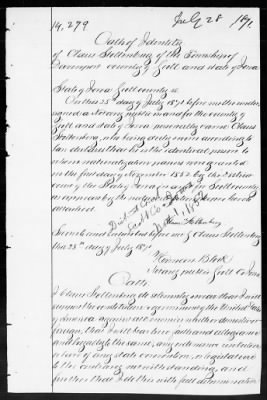 14,279
July 28 1871
Oath of Identity
of Claus Stoltenberg of the Township of
Davenport county of Scott and state of Iowa
State of Iowa Scott county ss
On this 25th day of July 1871 before me the under-
signed a Notary public in and for the county of
Scott and state of Iowa personally came Claus
Stoltenberg, who being duly sworn according to
law declares that he is the identical person to
whom naturalization papers were granted
on the first day of November 1852 by the District
court of the State of Iowa in and for Scott county
as appears by the naturalization papers hereto
attached.
District Court
Scott Co Iowa
Nov 1, 1852
Claus Stoltenberg
Sworn to and subscribed before me by Claus Stoltenberg
this 25th day of July 1871
Herman Block
Notary public Scott Co Iowa
Oath
I Claus Stoltenberg do solemnly swear that I will
support the constitution & government of the United States
of America against all enemies whether domestic or
foreign, that I will bear true faith and allegiance
and loyalty to the same, any ordinance, resolution
or law of any state convention, or legislature to
the contrary notwithstanding, and
further that I do this with full determination